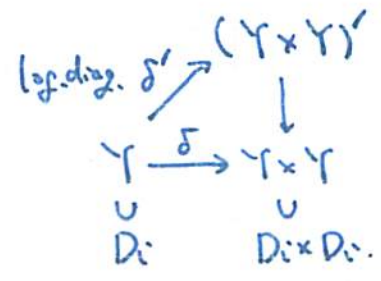 (Y × Y)′
log. diag. δ′
δ
Y → Y × Y
∪ ∪
Di Di × Di.